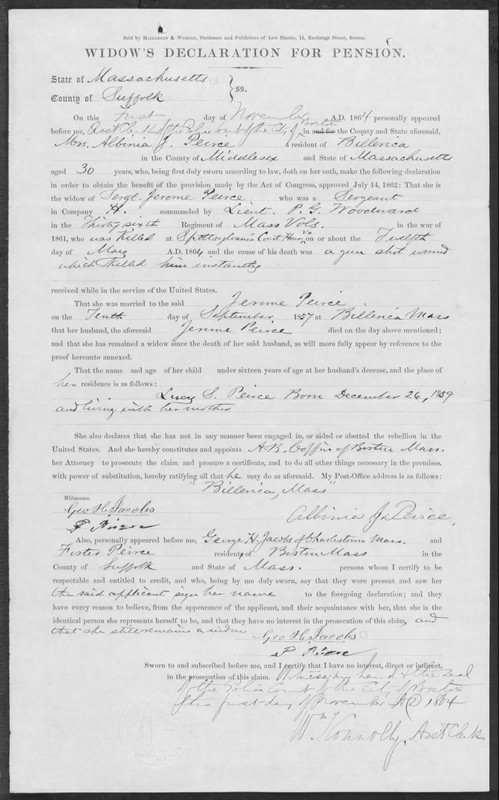 Sold by Hallgrest & Warren, Stationers and Publishers of Law Blanks, 14, Exchange Street, Boston.
WIDOW'S DECLARATION FOR PENSION.
State of Massachusetts
County of Suffolk } ss.
On this first day of November A.D. 1864 personally appeared
before me, Asst Clerk of the Police Court of the City of Boston in and for the County and State aforesaid,
Mrs. Albinia J. Peirce a resident of Billerica
in the County of Middlesex and State of Massachusetts
aged 30 years, who, being first duly sworn according to law, doth on her oath, make the following declaration
in order to obtain the benefit of the provision made by the Act of Congress, approved July 14, 1862: That she is
the Widow of Sergt. Jerome Peirce who was a Sergeant
in Company H. commanded by Lieut. P. G. Woodward
in the Thirty sixth Regiment of Mass Vols. in the war of
1861, who was killed at Spottsylvania Court House Va on or about the Twelfth
day of May A.D. 1864 and the cause of his death was a gun shot wound
which killed him instantly
received while in the service of the United States.
That she was married to the said Jerome Peirce
on the Tenth day of September 1857 at Billerica Mass
that her husband, the aforesaid Jerome Peirce died on the day above mentioned;
and that she has remained a widow since the death of her said husband, as will more fully appear by reference to the
proof hereunto annexed.
That the name and age of her child under sixteen years of age at her husband's decease, and the place of
her residence is as follows:
Lucy S. Peirce Born December 26, 1859
and living with her mother
She also declares that she has not in any manner been engaged in, or aided or abetted the rebellion in the
United States. And she hereby constitutes and appoints A. B. Coffin of Boston Mass.
her Attorney to prosecute the claim and procure a certificate, and to do all other things necessary in the premises,
with power of substitution, hereby ratifying all that he may do as aforesaid. My Post-Office address is as follows:
"Billerica, Mass"
Witnesses.
Geo H. Jacobs
F. Peirce
Albinia J. Peirce,
Also, personally appeared before me, George H. Jacobs of Charlestown Mass. and
Foster Peirce residents of Boston Mass in the
County of Suffolk and State of Mass. persons whom I certify to be
respectable and entitled to credit, and who, being by me duly sworn, say that they were present and saw her
the said applicant sign her name to the foregoing declaration; and they
have every reason to believe, from the appearance of the applicant, and their acquaintance with her, that she is the
identical person she represents herself to be, and that they have no interest in the prosecution of this claim, and
that she still remains a widow
Geo H. Jacobs
F. Peirce
Sworn to and subscribed before me, and I certify that I have no interest, direct or indirect,
in the prosecution of this claim. Witness my hand & the seal
of the Police Court of the City of Boston
this first day of November AD 1864
Wm Connolly, Asst Clerk